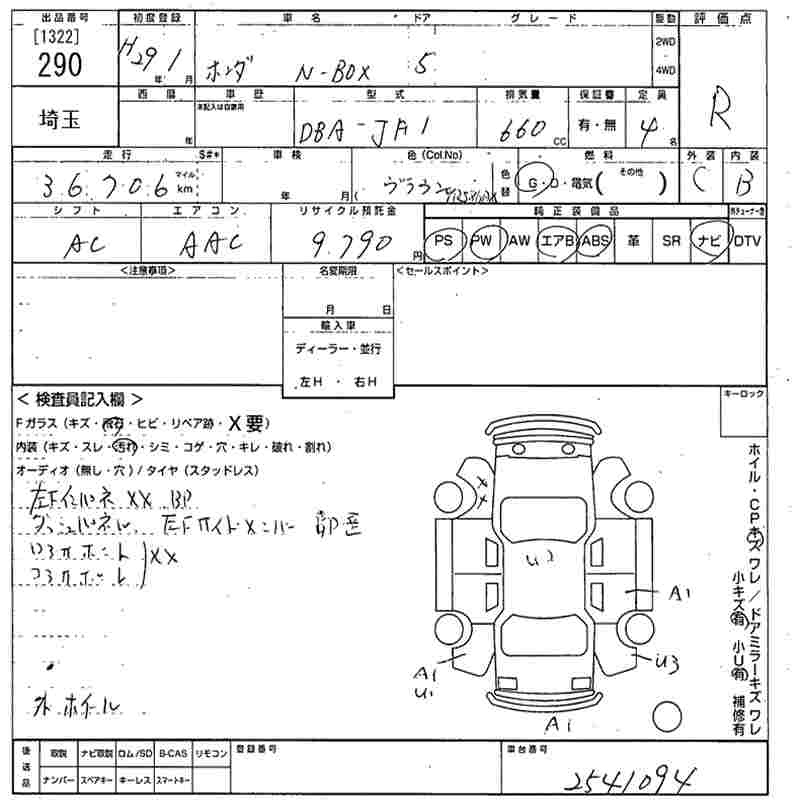 出品番号 初度登録 車名 ドア グレード 駆動 評価点
[1322] 290 H29 1 年 月 ホンダ N-BOX 5 2WD 4WD R
埼玉 西暦 年 車歴 本記入は自家用 型式 DBA-JF1 排気量 660 CC 保証書 有・無 定員 4名
走行 S#* 36706 マイル km 車検 年 月 色(Col.No) ブラウン 色替 燃料 G・D・電気( その他 ) 外装 C 内装 B
シフト エアコン リサイクル預託金 純正装備品
AC AAC 9,790 円 PS PW AW エアB ABS 革 SR ナビ DTV
<注意事項> 名変期限 <セールスポイント>
月 日
輸入車
ディーラー・並行
左H ・ 右H
キーロック
< 検査員記入欄 >
Fガラス(キズ・飛石・ヒビ・リペア跡・X要)
内装(キズ・スレ・汚れ・シミ・コゲ・穴・キレ・破れ・割れ)
オーディオ(無し・穴)/タイヤ(スタッドレス)
左Fインパネ XX BP
ダッシュパネル、左Fサイドメンバー
XX
外ホイール
XX
U2
A1
A1
U1
U3
A1
ホイル・CPキズ ワレ / ドアミラーキズ ワレ
小キズ有 小U有 補修有
後送品 取説 ナビ取説 ロム/SD B-CAS リモコン 登録番号 車台番号
ナンバー スペアキー キーレス スマートキー 2541094